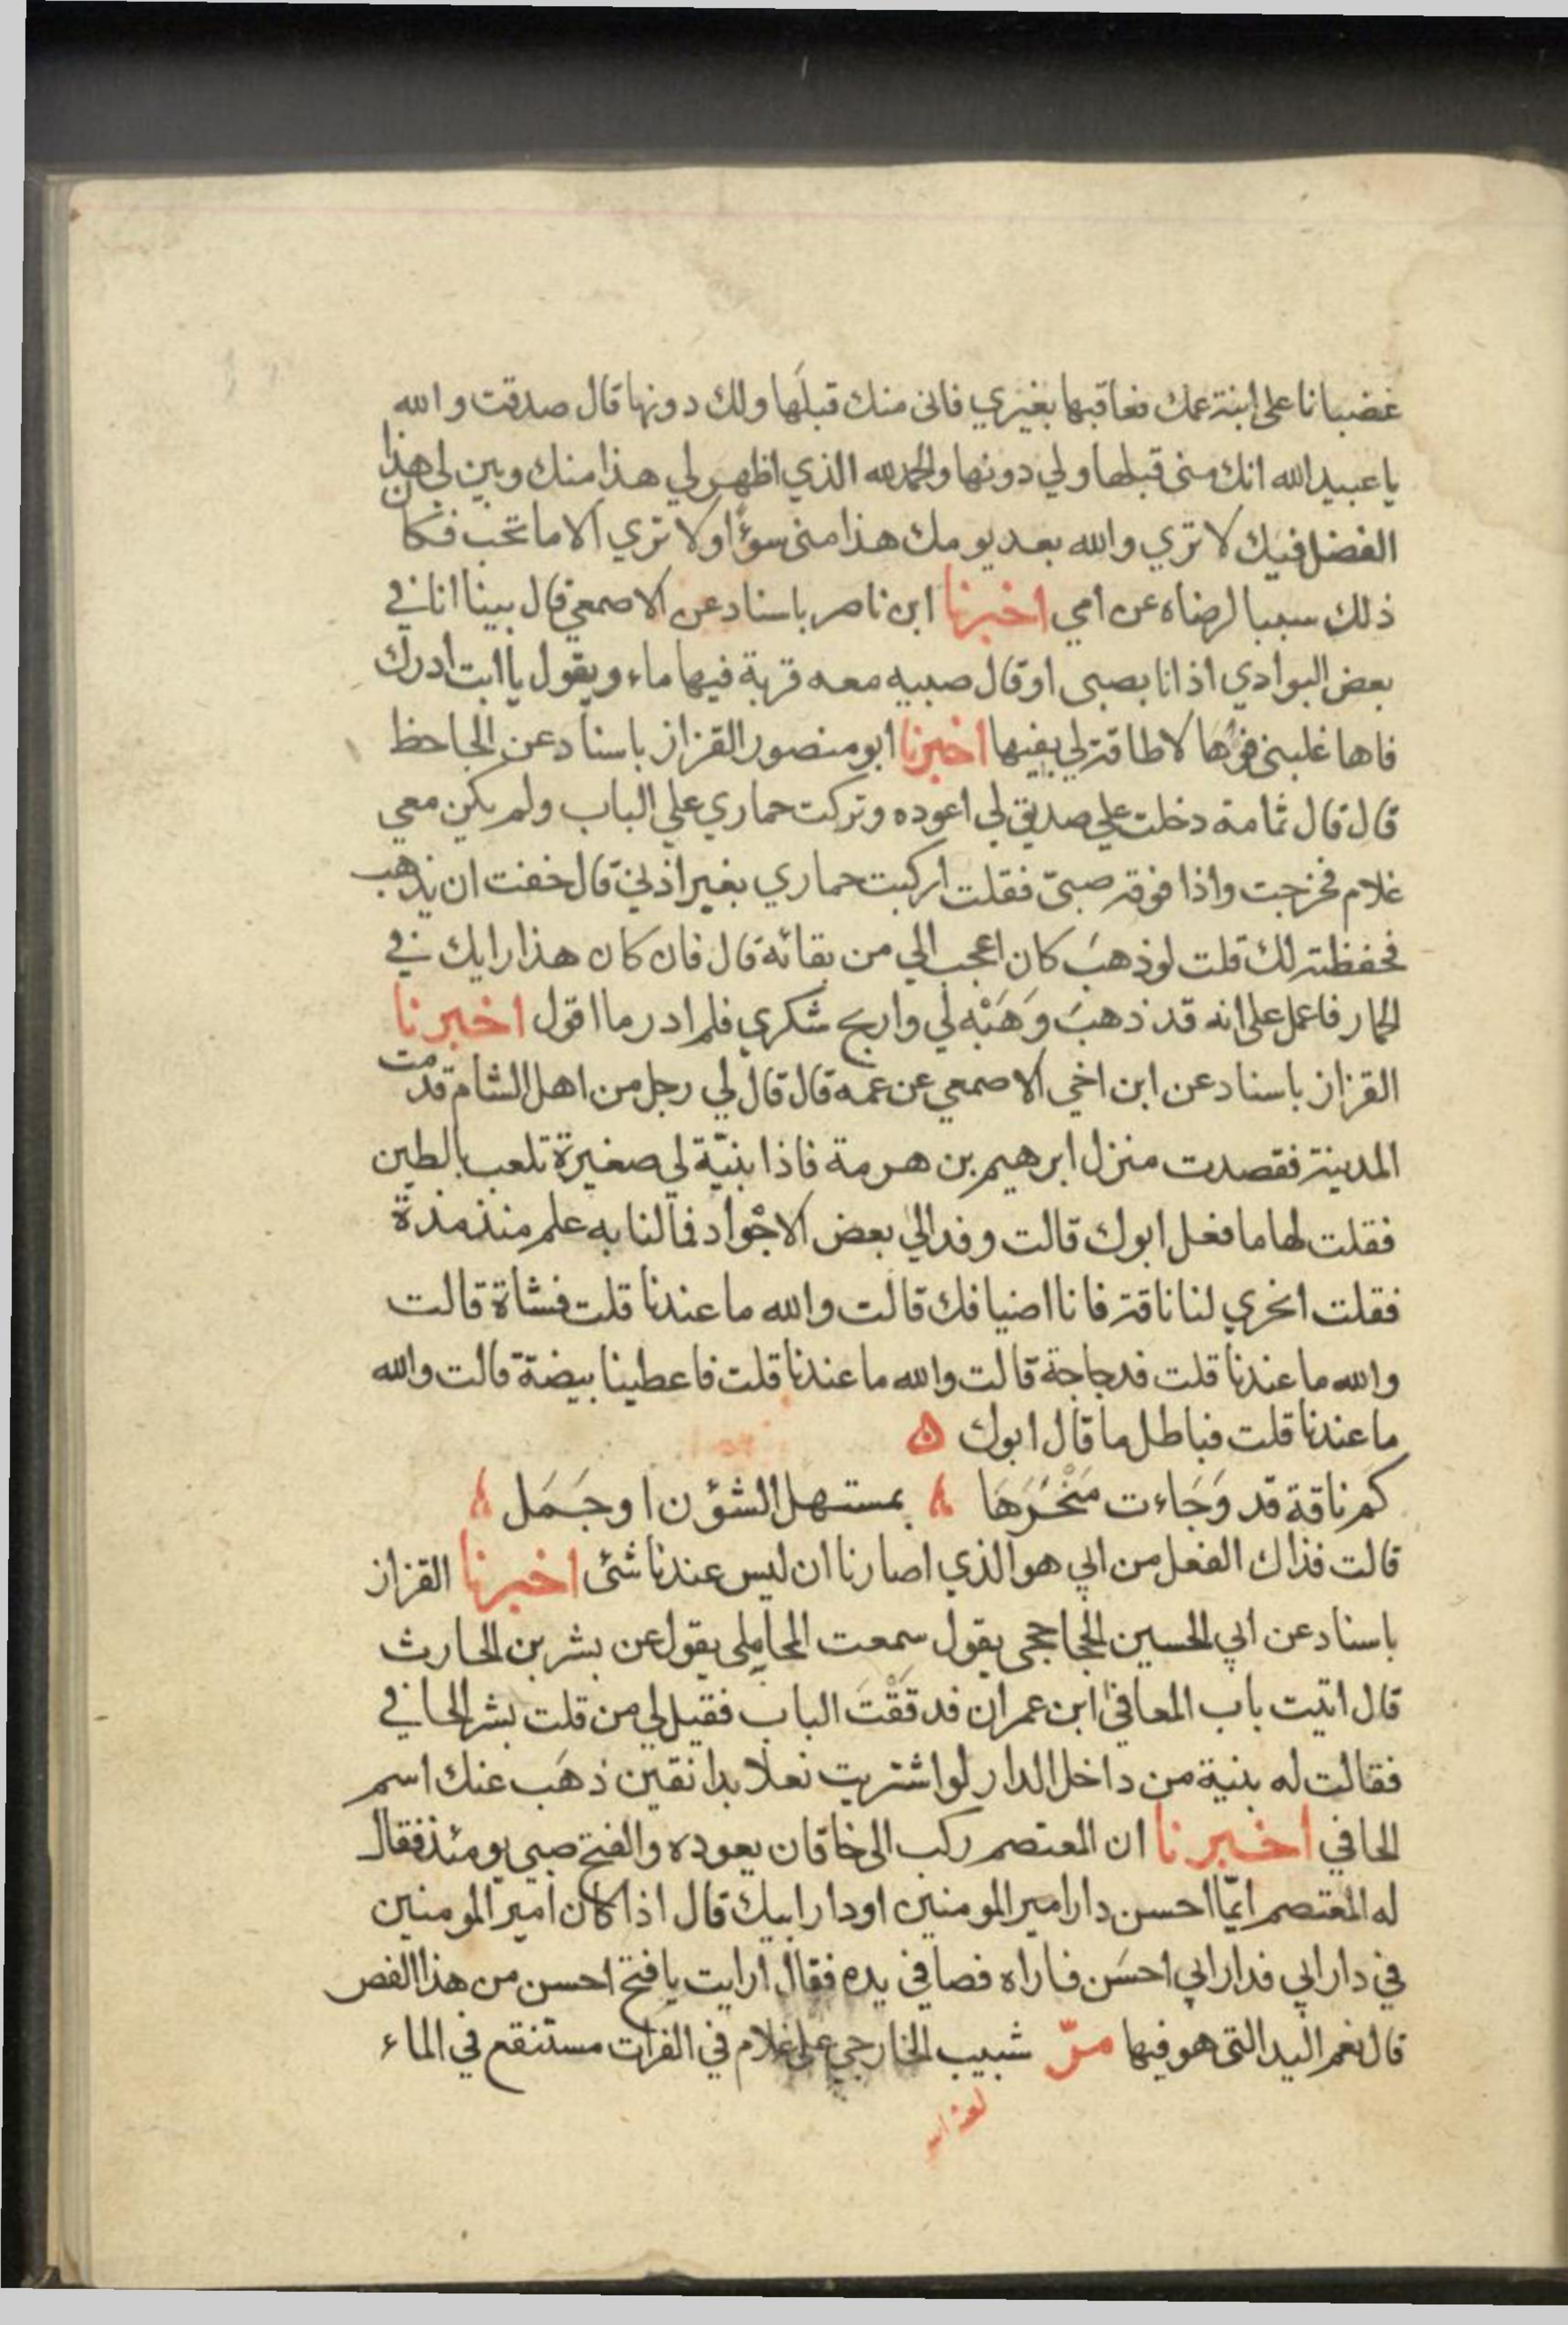 غضبانا على ابنة عمك فعاقبها بغيري فاني منك قبلها ولك دونها قال صدقت والله
يا عبيد الله انك مني قبلها ولي دونها والحمد لله الذي اظهر لي هذا منك وبين لي هذا
الفضل فيك لا تري والله بعد يومك هذا مني سوءًا ولا تري الا ما تحب فكان
ذلك سببا لرضاه عن امي اخبرنا ابن ناصر باسناد عن الاصمعي قال بينا انا في
بعض البوادي اذ انا بصبي او قال صبيه معه قربة فيها ماء ويقول يا ابت ادرك
فاها غلبني فوها لا طاقة لي بفيها اخبرنا ابو منصور القزاز باسناد عن الجاحظ
قال قال ثمامة دخلت علي صديق لي اعوده وتركت حماري علي الباب ولم يكن معي
غلام فخرجت واذا فوقه صبيّ فقلت اركبت حماري بغير اذني قال خفت ان يذهب
فحفظته لك قلت لو ذهبَ كان اعجب الي من بقائه قال فان كان هذا رايك في
الحمار فاعمل على انه قد ذهبَ وَهَبْه لي واربح شكري فلم ادر ما اقول اخبرنا
القزاز باسناد عن ابن اخي الاصمعي عن عمه قال قال لي رجل من اهل الشام قدمت
المدينة فقصدت منزل ابرهيم بن هرمة فاذا بنيّة لي صغيرة تلعب بالطين
فقلت لها ما فعل ابوك قالت وفد الي بعض الاجْواد فما لنا به علم منذ مذة
فقلت انحري لنا ناقة فانا اضيافك قالت والله ما عندنا قلت فشاة قالت
والله ما عندنا قلت فدجاجة قالت والله ما عندنا قلت فاعطينا بيضة قالت والله
ما عندنا قلت فباطل ما قال ابوك ه
كم ناقة قد وَجَاءت مَنْحَرَهَا بمستهل الشؤن او جَمَل
قالت فذاك الفعل من ابي هو الذي اصارنا ان ليس عندنا شئ اخبرنا القزاز
باسناد عن ابي الحسين الحجاجي يقول سمعت المحاملي يقول عن بشر بن الحارث
قال اتيت باب المعافي ابن عمران فدققْتَ الباب فقيل لي من قلت بشر الحافي
فقالت له بنية من داخل الدار لو اشتريت نعلا بدانقين ذهَب عنك اسم
الحافي اخبرنا ان المعتصم ركب الى خاقان يعوده والفتح صبي يومئذ فقال
له المعتصم ايّما احسن دار امير المومنين او دار ابيك قال اذا كان امير المومنين
في دار ابي فدار ابي احسَن فاراه فصا في يده فقال ارايت يا فتح احسن من هذا الفص
قال نعم اليد التي هو فيها مرّ شبيب الخارجي على غلام في الفرات مستنقع في الماء